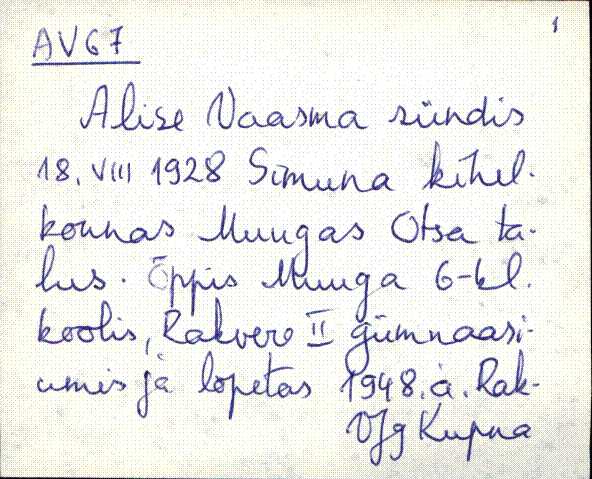 1
AV67
Alise Vaasma sündis
18. VIII 1928 Simuna kihel-
konnas Muugas Otsa ta-
lus. Õppis Muuga 6-kl.
koolis, Rakvere II gümnaasi-
umis ja lõpetas 1948. a. Rak-
VJg Kupna